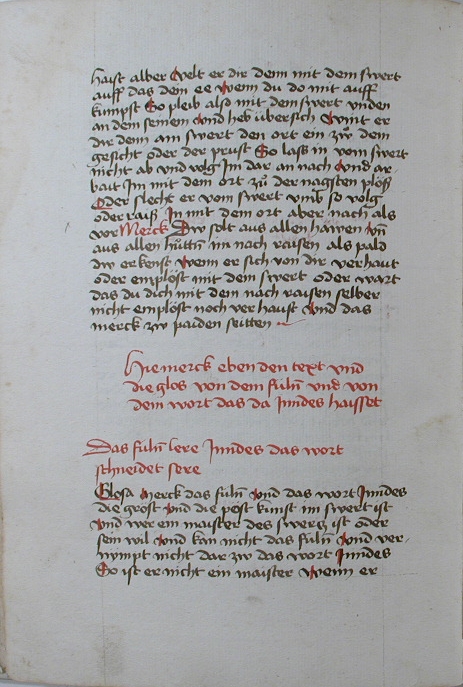 haist alber velt er dir denn mit dem swert
auff das dein ee wenn du do mit auff
kumpst So pleib also mit dem swert vnden
an dem seinem vnd heb übersich wint er
dir denn am swert den ort ein zů dem
gesicht oder der prust So lass in vom swert
nicht ab vnd volg Im dar an nach vnd ar-
bait Im mit dem ort zů der nagsten plöß
Oder slecht er vom swert vmb so volg
oder raiß In mit dem ort aber nach als
vor Merck Dw solt aus allen häwen vn̄
aus allen hůttn̄ im nach raisen als pald
dw erkenst wenn er sich von dir verhaut
oder emplöst mit dem swert oder wart
das du dich mit dem nach raisen selber
nicht emplöst noch verhaust vnd das
merck zw paiden seitten
Hie merck eben den text vnd
die glos von dem fůln̄ vnd von
dem wort das da Inndes haisset
Das fůln̄ lere Inndes das wort
schneidet sere
Glosa Merck das fůln̄ vnd das wort Inndes
die gröst vnd die pest kunst im swert ist
vnd wer ein maister des swertz ist oder
sein wil vnd kan nicht das fůln̄ vnd ver-
nympt nicht dar zw das wort Inndes
So ist er nicht ein maister wenn er